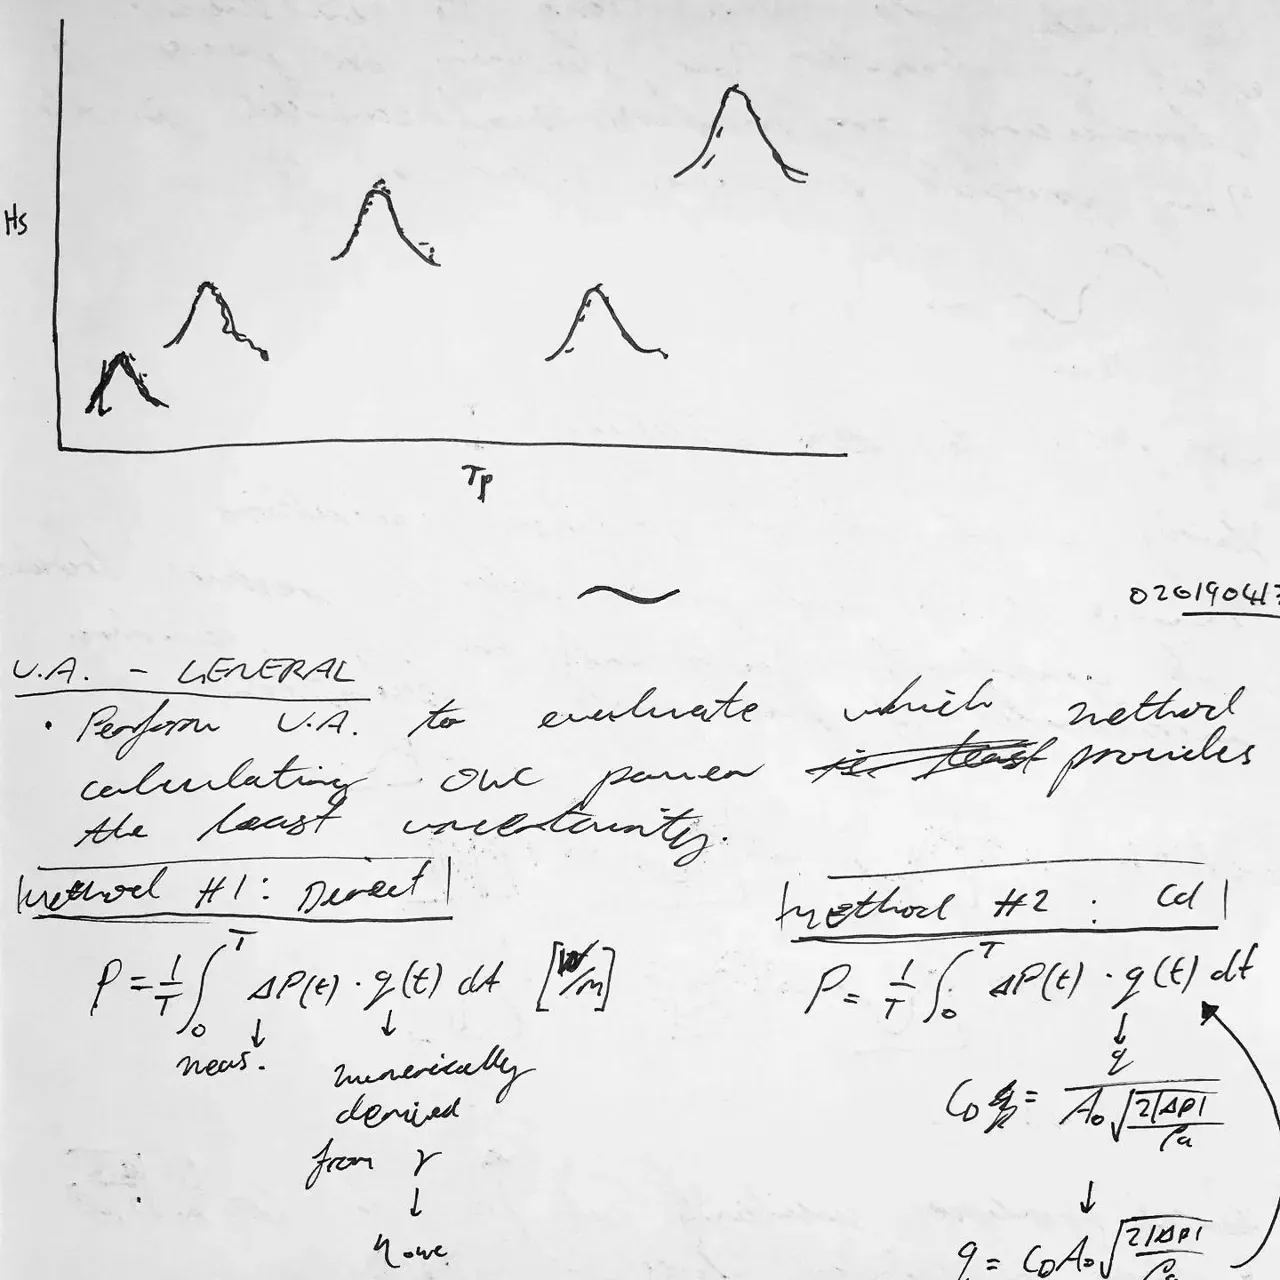 Hs
Tp
02019041
U.A. - GENERAL
• Perform U.A. to evaluate which method
calculating OWC power is least provides
the least uncertainty.
Method #1: Direct
P = 1/T ∫₀ᵀ ΔP(t) · q(t) dt [W/m]
↓ ↓
meas. numerically
derived
from γ
↓
η owc
Method #2 : Cd
P = 1/T ∫₀ᵀ ΔP(t) · q(t) dt
↓
C_D = q / A₀ √(2|ΔP| / ρa)
↓
q = C_D A₀ √(2|ΔP| / ρa)